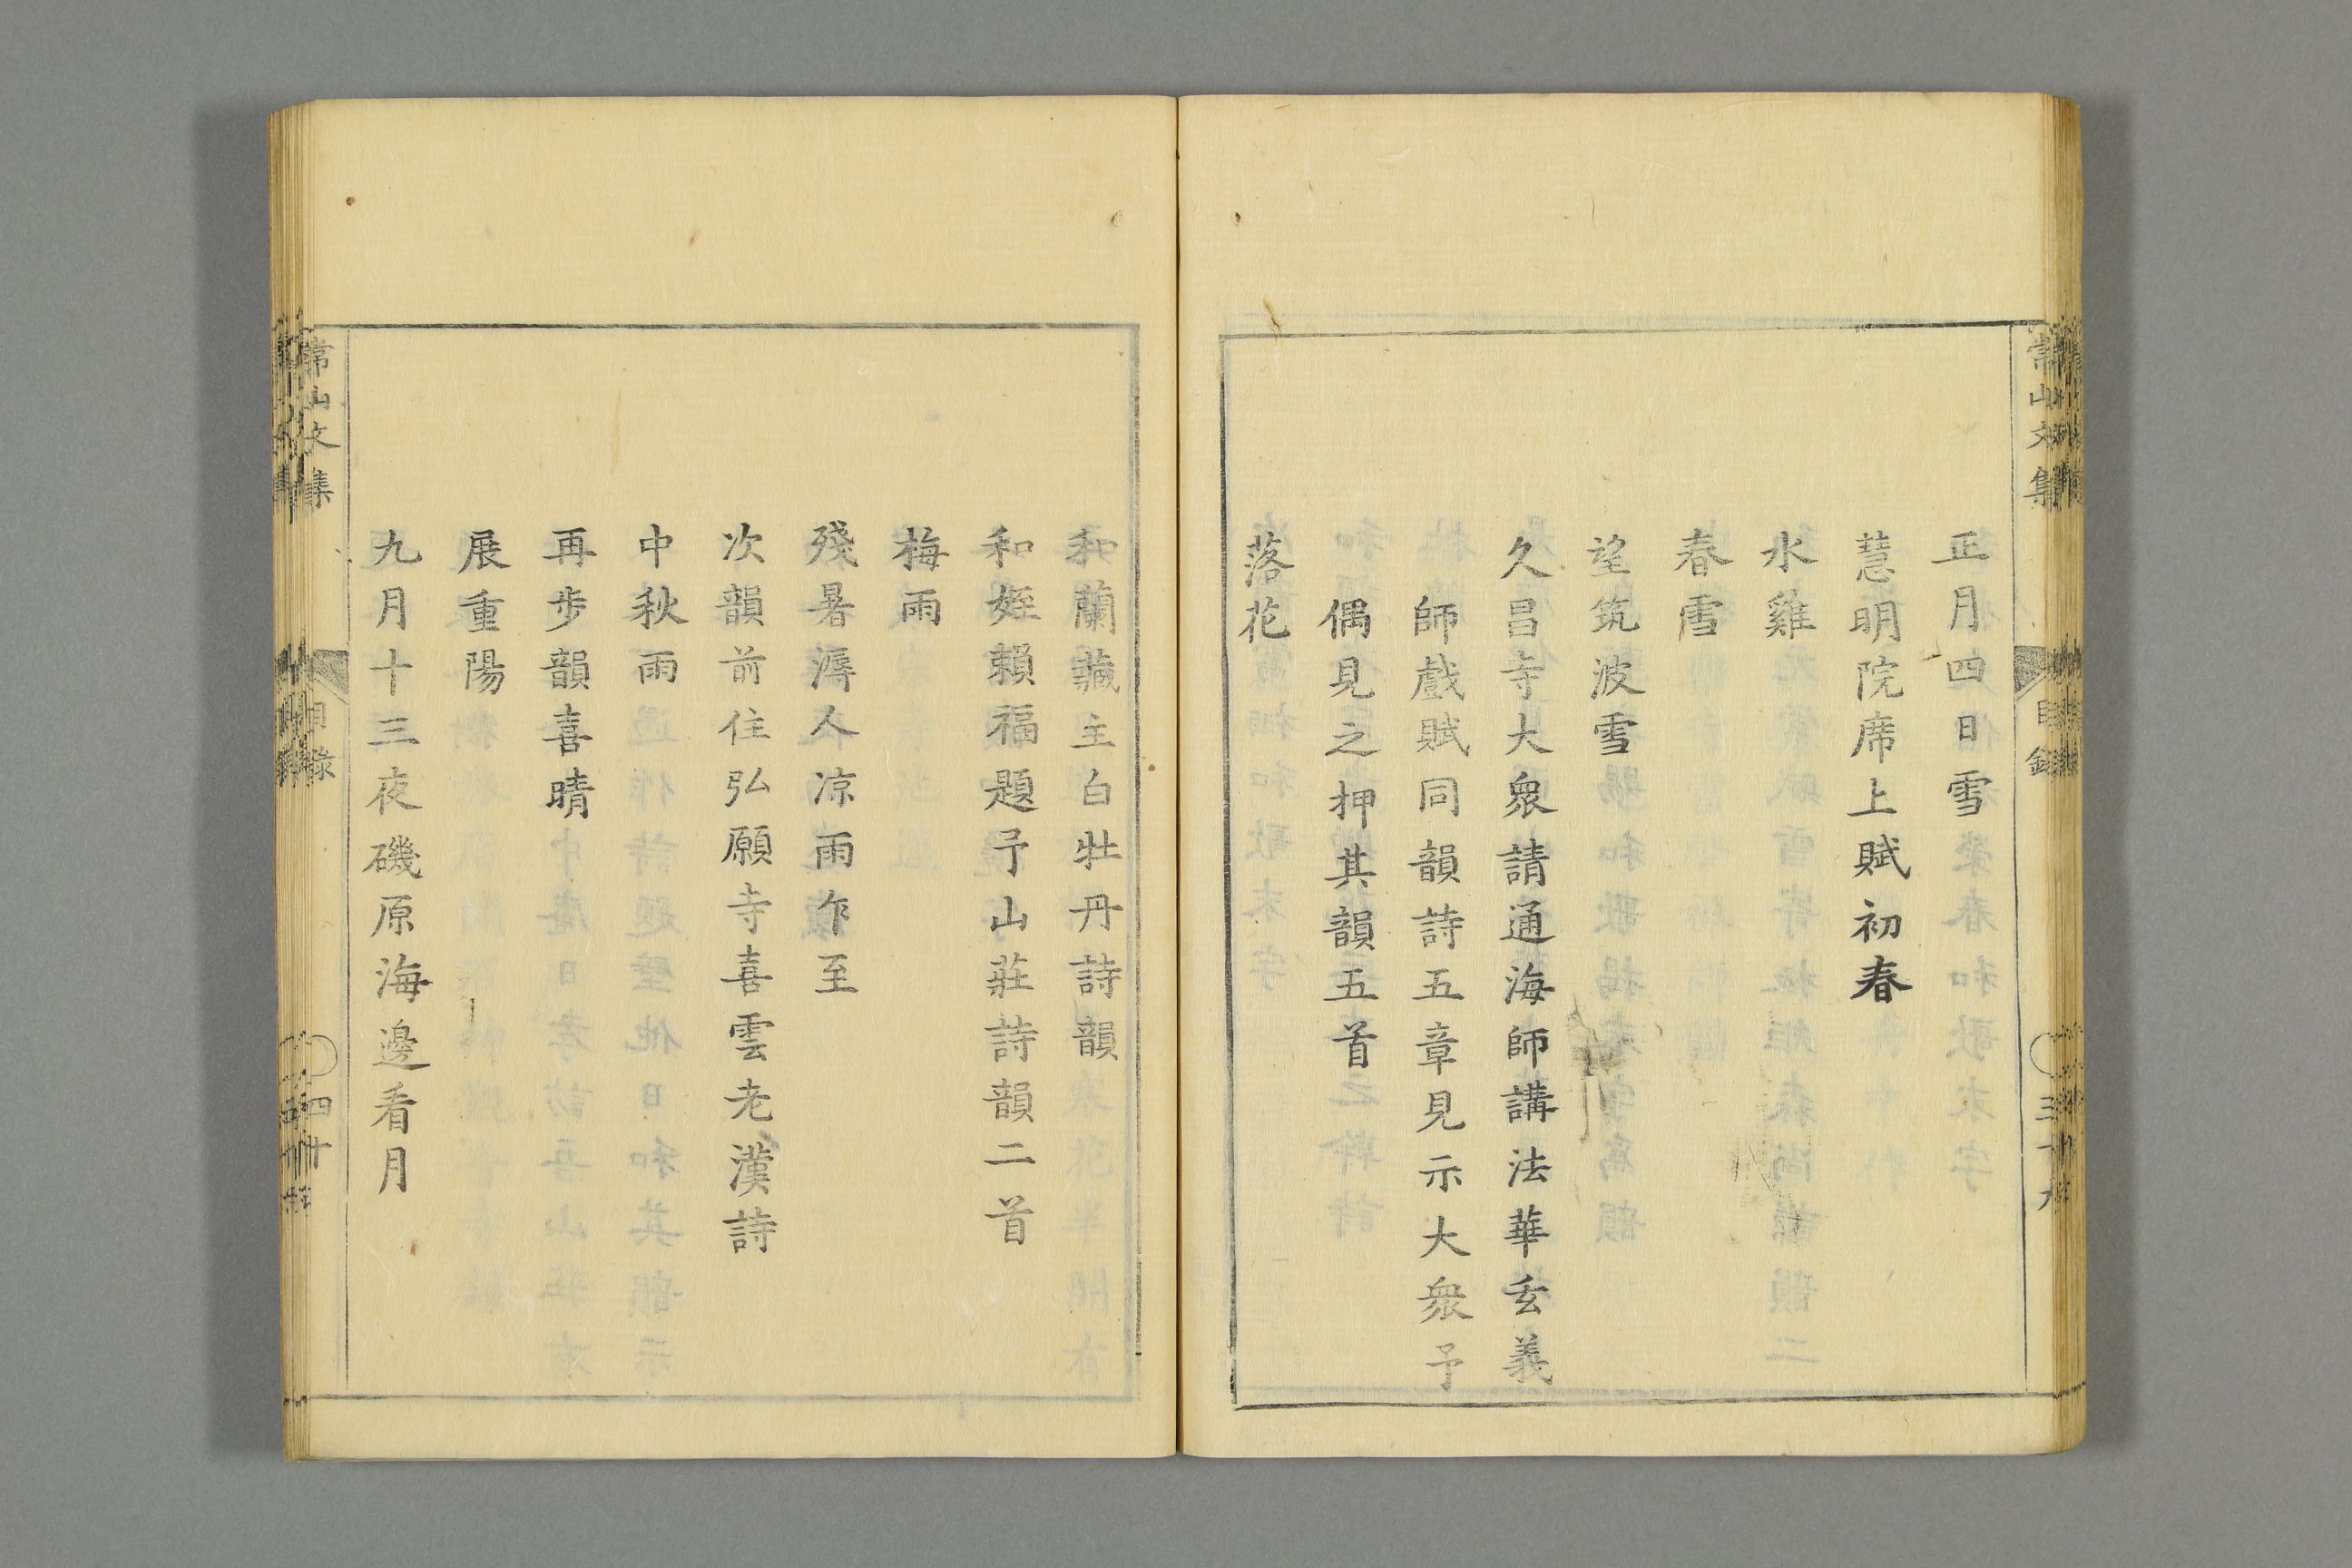 常山文集 目錄 三十九
正月四日雪
慧明院席上賦初春
水雞
春雪
望筑波雪
久昌寺大衆請通海師講法華玄義
師戲賦同韻詩五章見示大衆予
偶見之押其韻五首
落花
和蘭藏主白牡丹詩韻
和姪賴福題予山莊詩韻二首
梅雨
殘暑溽人凉雨乍至
次韻前住弘願寺喜雲老漢詩
中秋雨
再步韻喜晴
展重陽
九月十三夜磯原海邊看月
常山文集 目錄 四十